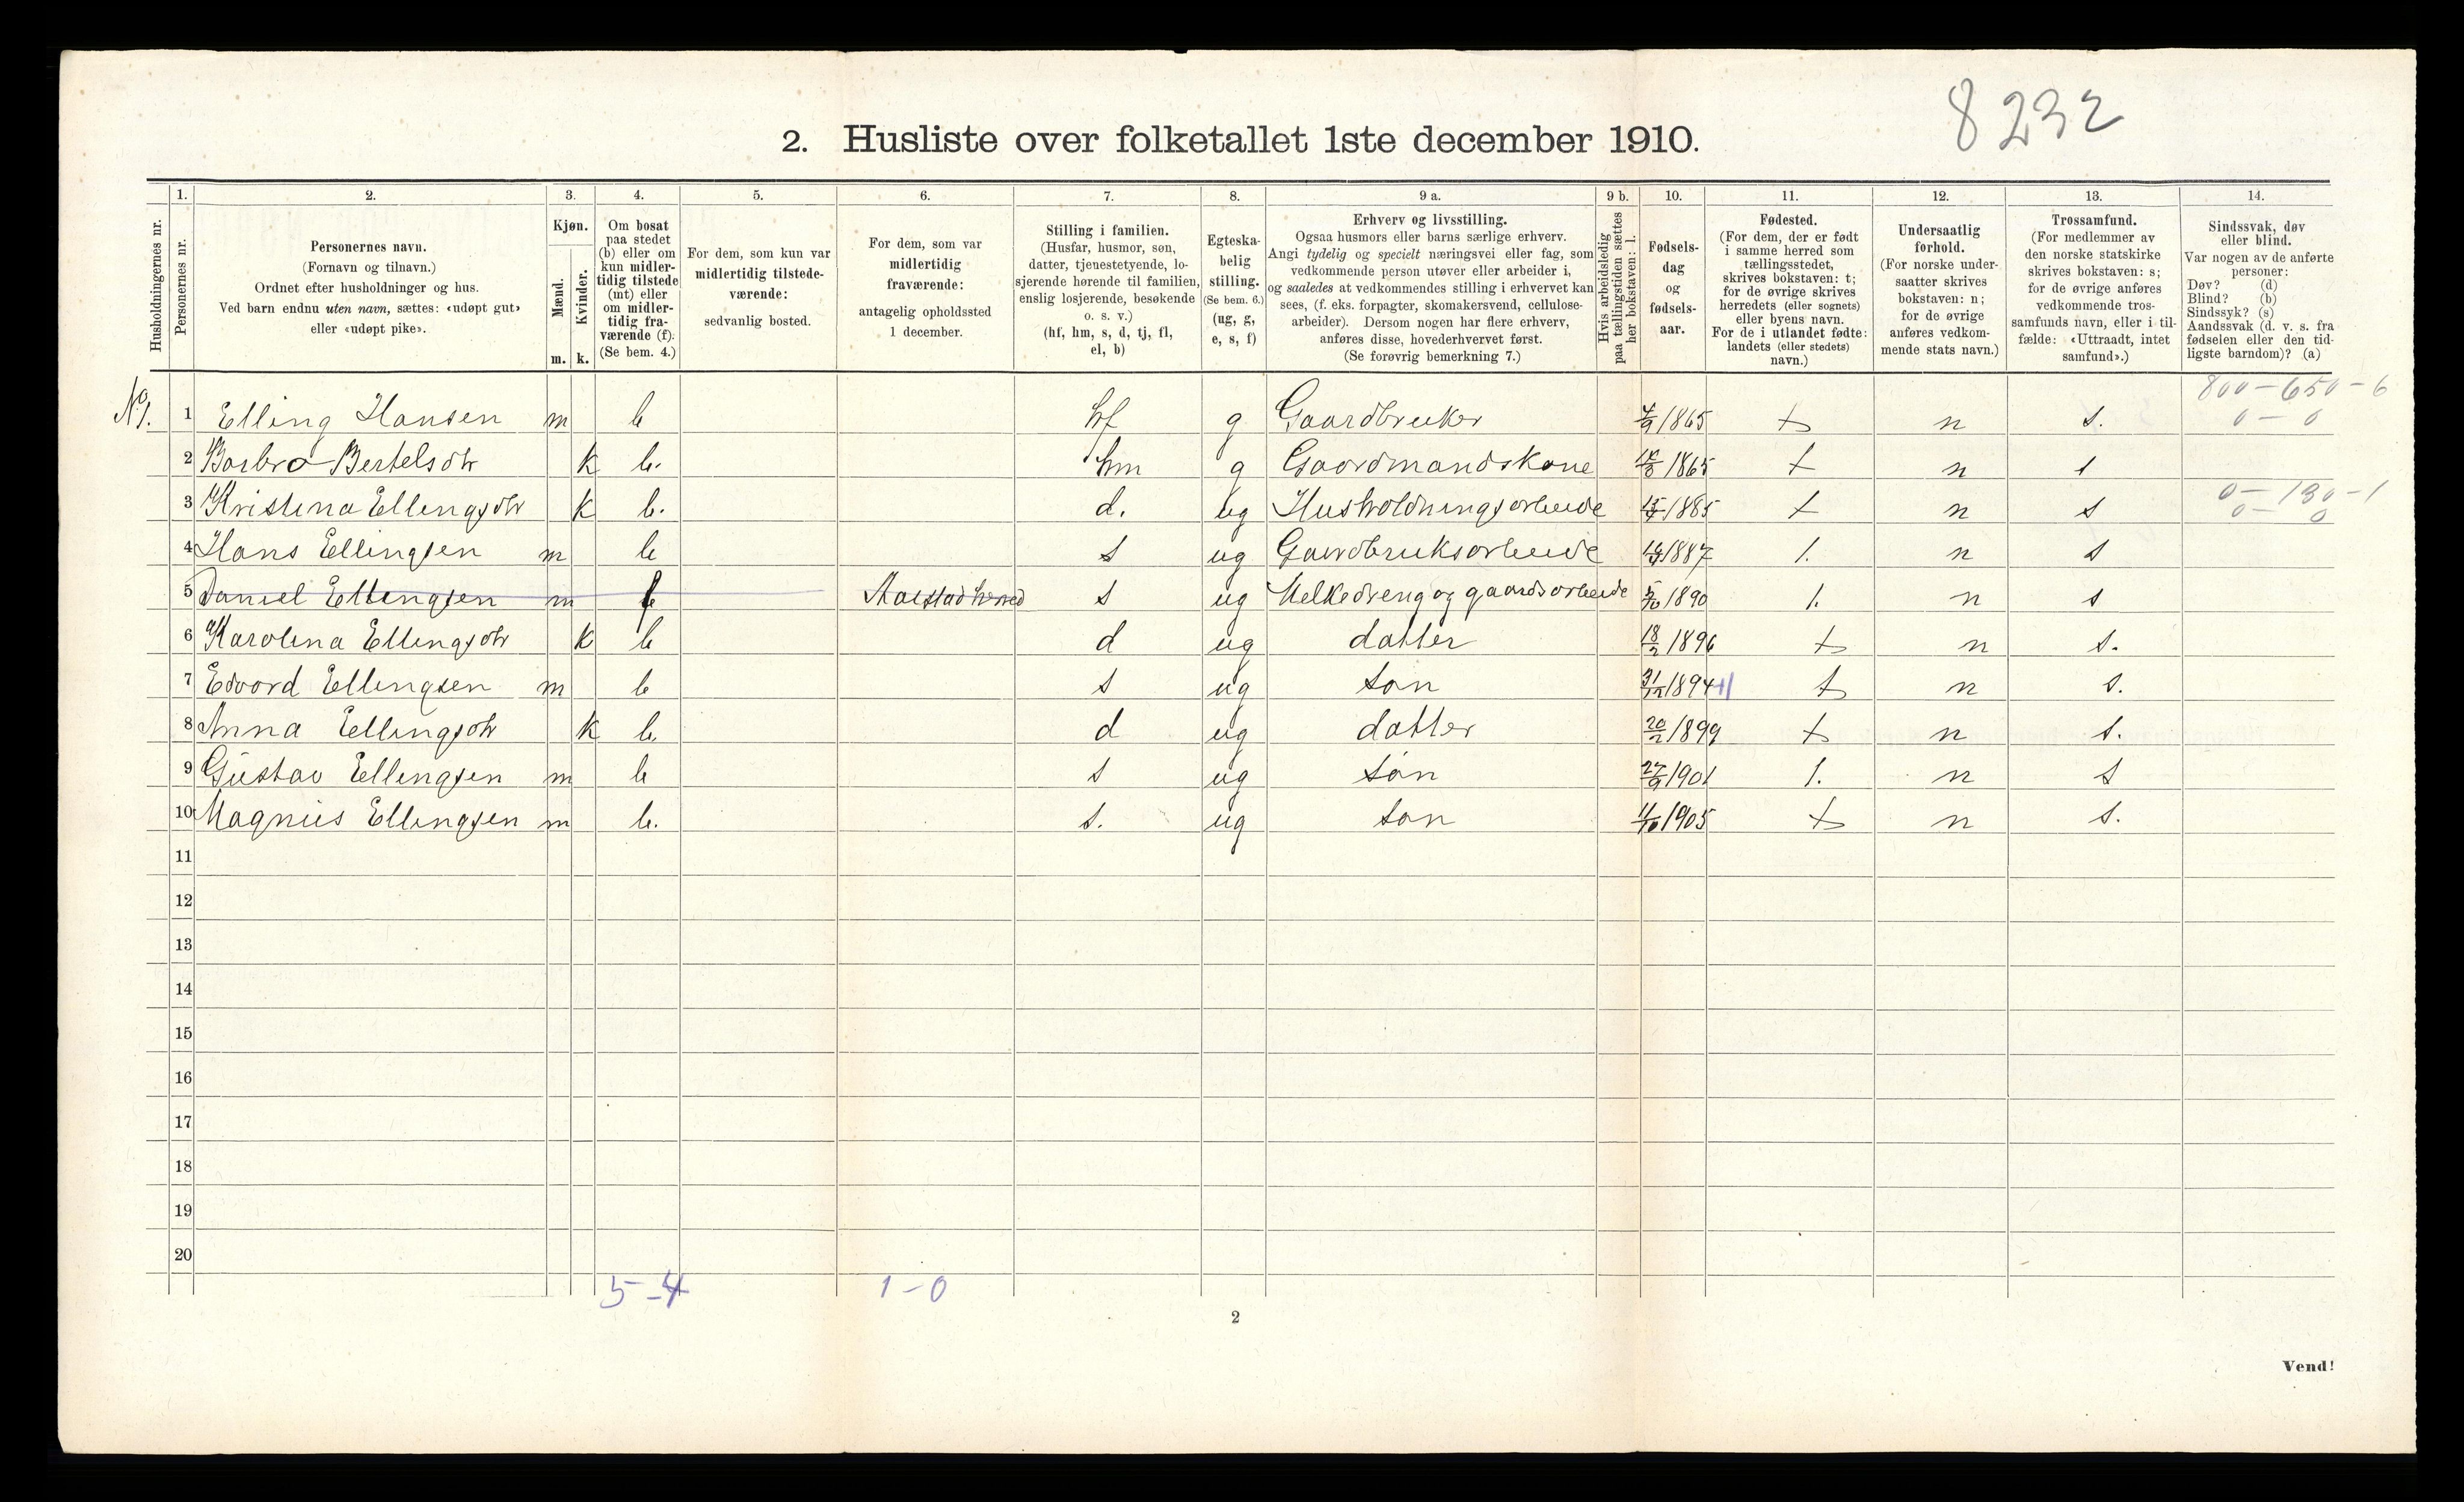 8232
2. Husliste over folketallet 1ste december 1910.
1. 2. 3. 4. 5. 6. 7. 8. 9 a. 9 b. 10. 11. 12. 13. 14.
Husholdningernes nr.
Personernes nr.
Personernes navn.
(Fornavn og tilnavn.)
Ordnet efter husholdninger og hus.
Ved barn endnu uten navn, sættes: «udøpt gut»
eller «udøpt pike».
Kjøn.
Mænd.
Kvinder.
m. k.
Om bosat
paa stedet
(b) eller om
kun midler-
tidig tilstede
(mt) eller
om midler-
tidig fra-
værende (f).
(Se bem. 4.)
For dem, som kun var
midlertidig tilstede-
værende:
sedvanlig bosted.
For dem, som var
midlertidig
fraværende:
antagelig opholdssted
1 december.
Stilling i familien.
(Husfar, husmor, søn,
datter, tjenestetyende, lo-
sjerende hørende til familien,
enslig losjerende, besøkende
o. s. v.)
(hf, hm, s, d, tj, fl,
el, b)
Egteska-
belig
stilling.
(Se bem. 6.)
(ug, g,
e, s, f)
Erhverv og livsstilling.
Ogsaa husmors eller barns særlige erhverv.
Angi tydelig og specielt næringsvei eller fag, som
vedkommende person utøver eller arbeider i,
og saaledes at vedkommendes stilling i erhvervet kan
sees, (f. eks. forpagter, skomakersvend, cellulose-
arbeider). Dersom nogen har flere erhverv,
anføres disse, hovederhvervet først.
(Se forøvrig bemerkning 7.)
Hvis arbeidsledig
paa tællingstiden sættes
her bokstaven: l.
Fødsels-
dag
og
fødsels-
aar.
Fødested.
(For dem, der er født
i samme herred som
tællingsstedet,
skrives bokstaven: t;
for de øvrige skrives
herredets (eller sognets)
eller byens navn.
For de i utlandet fødte:
landets (eller stedets)
navn.)
Undersaatlig
forhold.
(For norske under-
saatter skrives
bokstaven: n;
for de øvrige
anføres vedkom-
mende stats navn.)
Trossamfund.
(For medlemmer av
den norske statskirke
skrives bokstaven: s;
for de øvrige anføres
vedkommende tros-
samfunds navn, eller i til-
fælde: «Uttraadt, intet
samfund».)
Sindssvak, døv
eller blind.
Var nogen av de anførte
personer:
Døv? (d)
Blind? (b)
Sindssyk? (s)
Aandssvak (d. v. s. fra
fødselen eller den tid-
ligste barndom)? (a)
800 - 650 - 6
No 1. 1 Elling Hansen m b hf g Gaardbruker 4/9 1865 t n s. 0 - 0
2 Barbro Bertelsdtr k b. hm g Gaardmandskone 1865 t n s
0 - 130 - 1
3 Kristina Ellingsdtr k b. d. ug Husholdningsarbeide 1885 t n s 0 - 0
4 Hans Ellingsen m b s ug Gardbruksarbeide 1887 t. n s
5 Daniel Ellingsen m f herred s ug Melkedreng og gaardsarbeide 5/10 1890 t. n s
6 Karolina Ellingsdtr k b d ug datter 18/2 1896 t n s.
7 Edvard Ellingsen m b s ug søn 31/12 1894 t n s.
8 Anna Ellingsdtr k b. d ug datter 20/2 1899 t n s.
9 Gustav Ellingsen m b s ug søn 27/9 1901 t. n s
10 Magnus Ellingsen m b. s. ug søn 11/10 1905 t n s.
11
12
13
14
15
16
17
18
19
20
5 - 4 1 - 0
2
Vend!